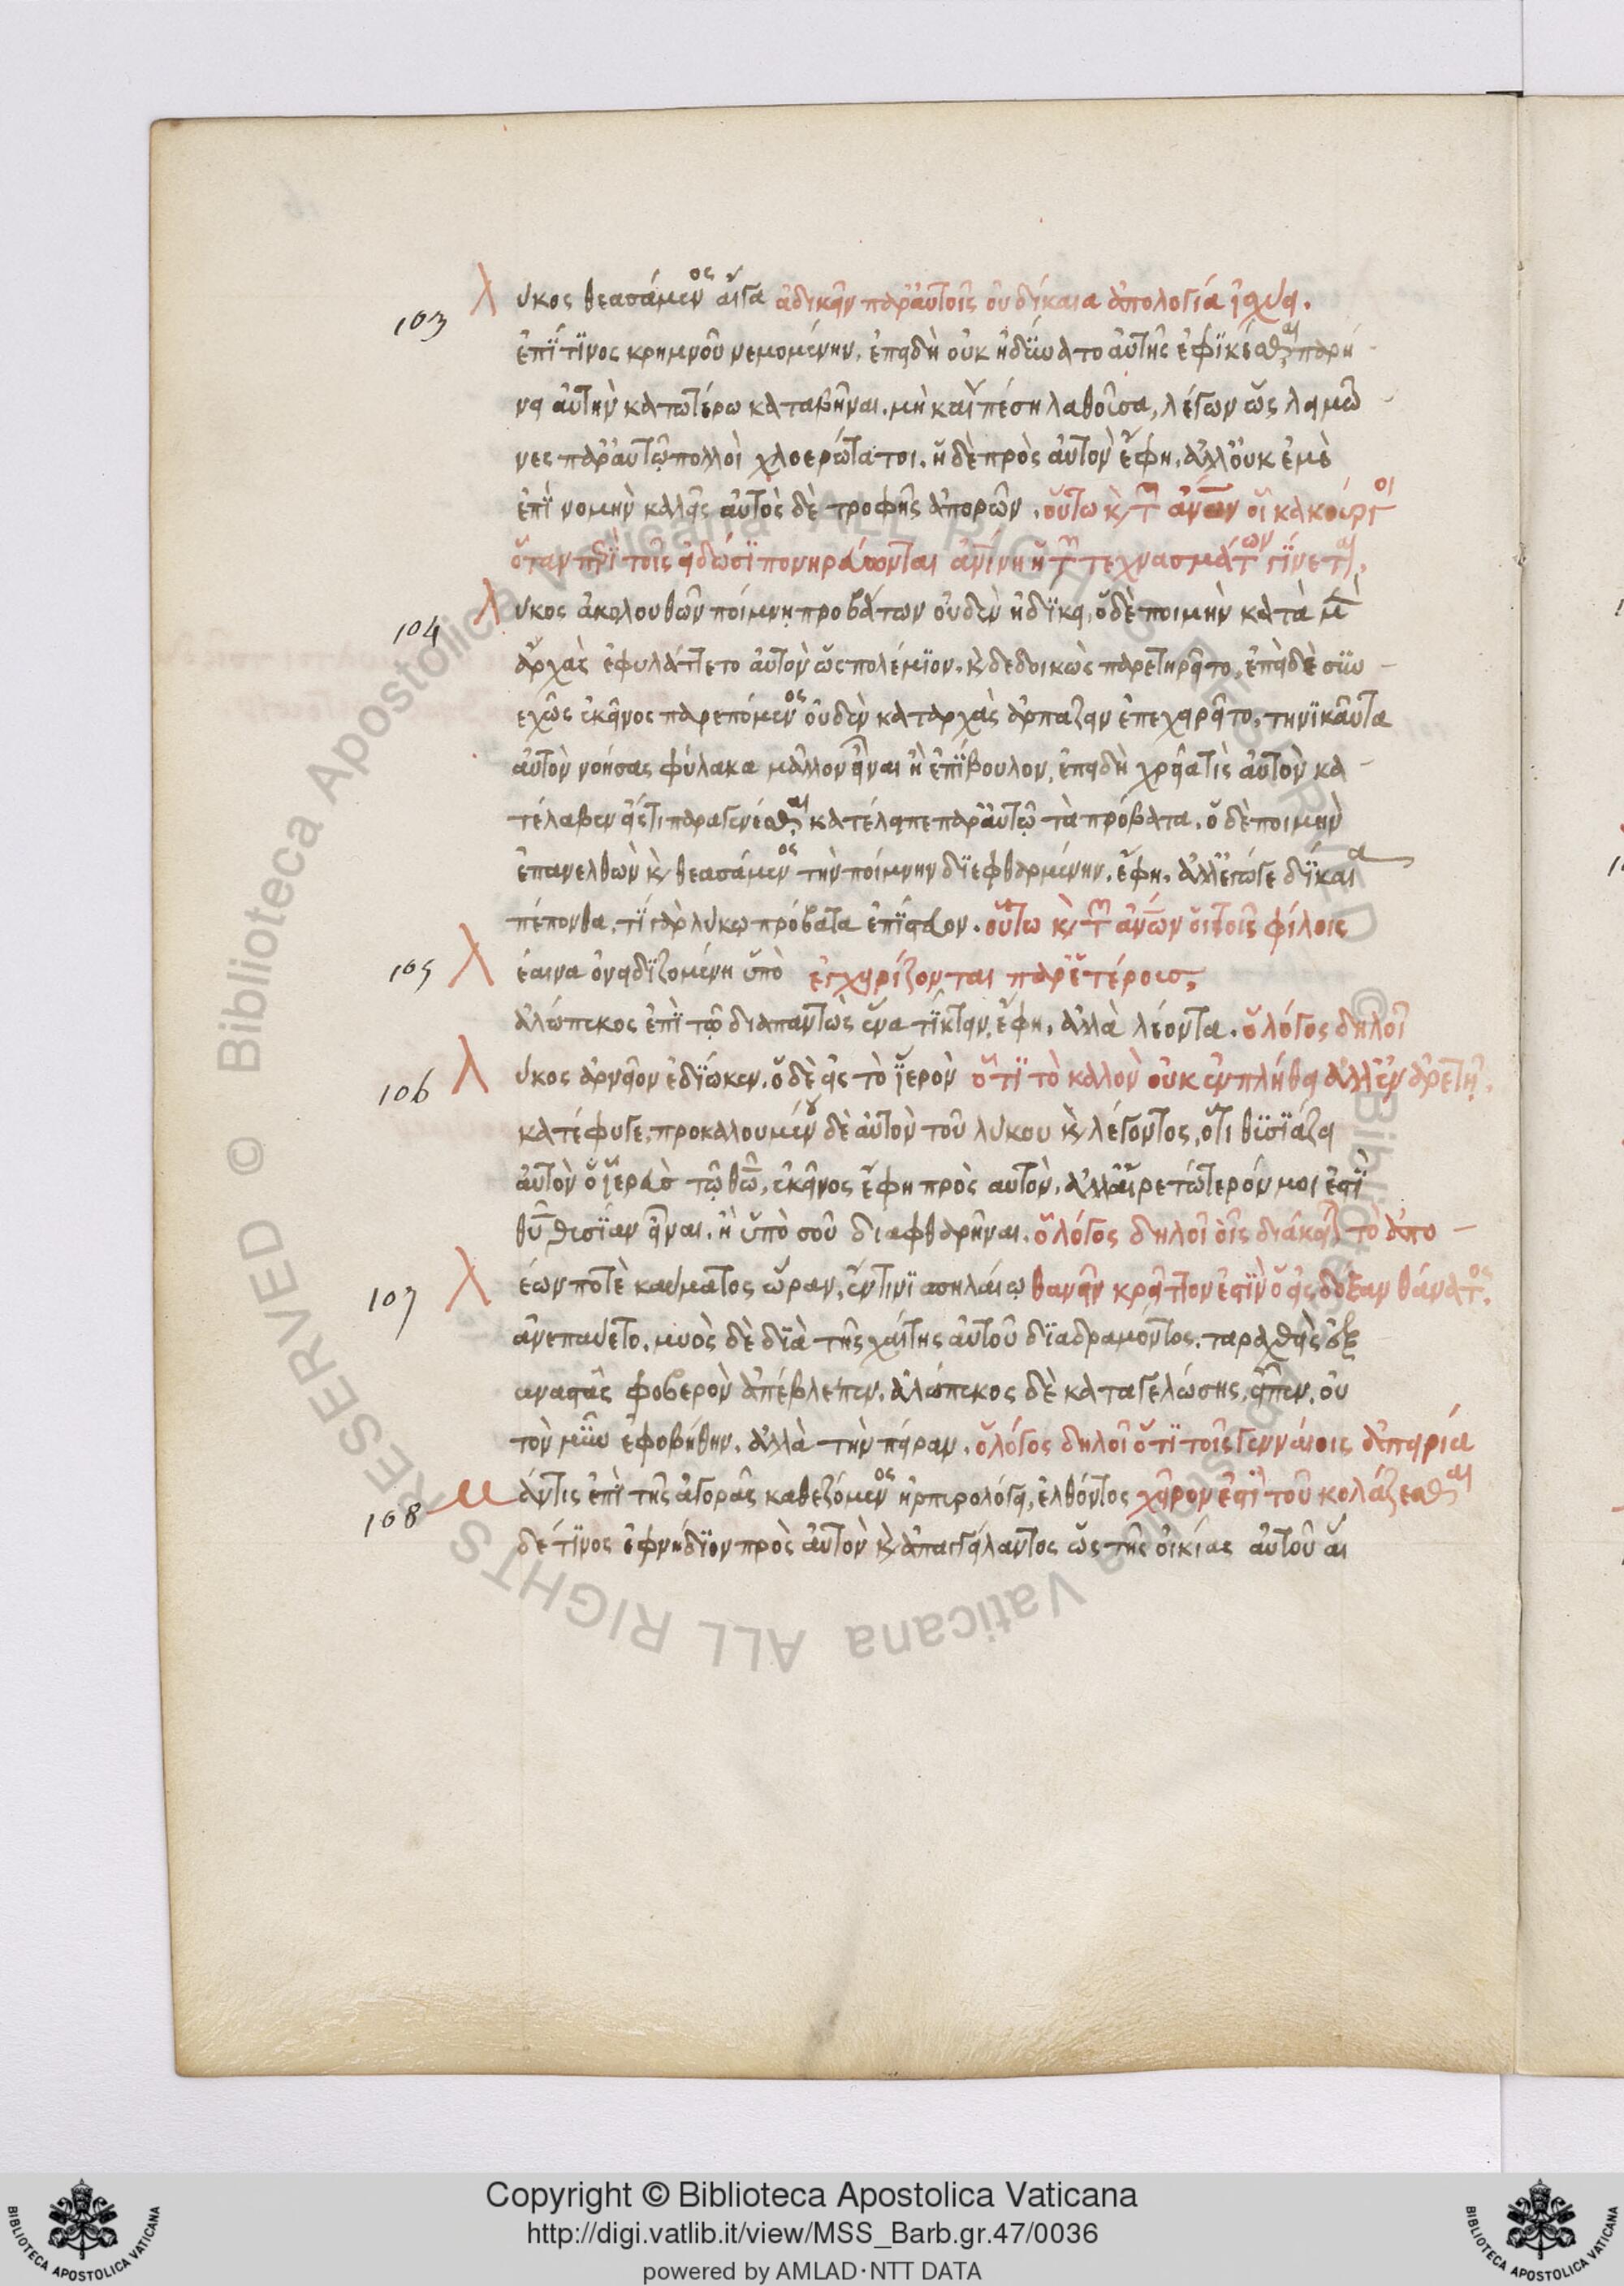 103 λύκος θεασάμενος αἶγα ἀδικεῖν παρ' αὐτοῖς οὐ δίκαια ἀπολογία ἰσχύει.
ἐπί τινος κρημνοῦ νεμομένην, ἐπειδὴ οὐκ ἠδύνατο αὐτῆς ἐφικέσθαι παρή-
νει αὐτὴν κατωτέρω καταβῆναι. μὴ καὶ πέση λαθοῦσα, λέγων ὡς λειμῶ-
νες παρ' αὐτῷ πολλοὶ χλοερώτατοι. ἡ δὲ πρὸς αὐτὸν ἔφη. ἀλλ' οὐκ ἐμὲ
ἐπὶ νομὴν καλεῖς αὐτὸς δὲ τροφῆς ἀπορῶν. οὕτω κ(αὶ) τῶν ἀν(θρώπ)ων οἱ κακοῦργοι
ὅταν π(α)ρὰ τοῖς εἰδόσι πονηρεύωνται ἀνόνητοι τῶν τεχνασμάτων γίνονται.
104 λύκος ἀκολουθῶν ποίμνῃ προβάτων οὐδὲν ἠδίκει, ὁ δὲ ποιμὴν κατὰ μὲν
ἀρχὰς ἐφυλάττετο αὐτὸν ὡς πολέμιον. κ(αὶ) δεδοικὼς παρετηρεῖτο, ἐπεὶ δὲ συν-
εχῶς ἐκεῖνος παρεπόμενος οὐδὲν καταρχὰς ἁρπάζειν ἐπεχειρεῖτο, τηνικαῦτα
αὐτὸν νοήσας φύλακα μᾶλλον εἶναι ἢ ἐπίβουλον, ἐπειδὴ χρεία τις αὐτὸν κα-
τέλαβεν εἰς ἄστυ παραγενέσθαι κατέλειπε παρ' αὐτῷ τὰ πρόβατα. ὁ δὲ ποιμὴν
ἐπανελθὼν κ(αὶ) θεασάμενος τὴν ποίμνην διεφθαρμένην, ἔφη. ἀλλ' ἔγωγε δίκαια
πέπονθα. τί γὰρ λύκῳ πρόβατα ἐπίστευον. οὕτω κ(αὶ) τῶν ἀν(θρώπ)ων οἱ τοῖς φίλοις
105 λέαινα ὀνειδιζομένη ὑπὸ ἐγχειρίζονται παρ' ἑτέροις,
ἀλώπεκος ἐπὶ τῷ διαπαντὸς ἕνα τίκτειν, ἔφη, ἀλλὰ λέοντα. ὁ λόγος δηλοῖ
106 λύκος ἀρνεῖον ἐδίωκεν. ὁ δὲ εἰς τὸ ἱερὸν ὅτι τὸ καλὸν οὐκ ἐν πλήθει ἀλλ' ἐν ἀρετῇ.
κατέφυγε, προκαλουμένου δὲ αὐτὸν τοῦ λύκου κ(αὶ) λέγοντος, ὅτι θυσιάζει
αὐτὸν ὁ ἱερεὺς τῷ θ(ε)ῷ, ἐκεῖνος ἔφη πρὸς αὐτὸν, ἀλλ' αἱρετώτερόν μοι ἐστὶ
θ(εο)ῦ θυσίαν εἶναι. ἢ ὑπὸ σοῦ διαφθαρῆναι. ὁ λόγος δηλοῖ οἷς διάκειται τὸ ἀπο-
107 λέων ποτὲ καύματος ὥραν, ἔν τινι σπηλαίῳ θανεῖν κρεῖττον ἐστὶν ὁ εἰς δόξαν θάνατος.
ἀνεπαύετο, μυὸς δὲ διὰ τῆς χαίτης αὐτοῦ διαδραμόντος, ταραχθεὶς ἐξ-
αναστὰς φοβερὸν ἀπέβλεπεν. ἀλώπεκος δὲ καταγελώσης, εἶπεν, οὐ
τὸν μῦν ἐφοβήθην, ἀλλὰ τὴν πεῖραν. ὁ λόγος δηλοῖ ὅτι τοῖς γενναίοις ἀπειρία
108 μάντις ἐπὶ τῆς ἀγορᾶς καθεζόμενος ἠργυρολόγει, ἐλθόντος χεῖρον ἐστὶ τοῦ κολάζεσθαι
δέ τινος ἐφνήδιον πρὸς αὐτὸν κ(αὶ) ἀπαγγείλαντος ὡς τῆς οἰκίας αὐτοῦ αἱ
© Biblioteca Apostolica Vaticana ALL RIGHTS RESERVED
Copyright © Biblioteca Apostolica Vaticana
http://digi.vatlib.it/view/MSS_Barb.gr.47/0036
powered by AMLAD·NTT DATA
BIBLIOTECA APOSTOLICA VATICANA
BIBLIOTECA APOSTOLICA VATICANA